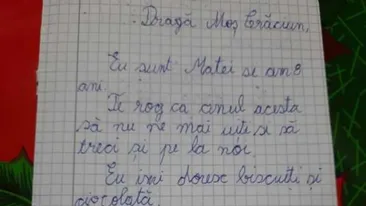 Dragă Moș Crăciun,
Eu sunt Matei si an 8
ani.
Te rog ca anul acesta
să nu ne mai uiti si să
treci și pe la noi.
Eu îmi doresc biscuiti și
ciocolată.